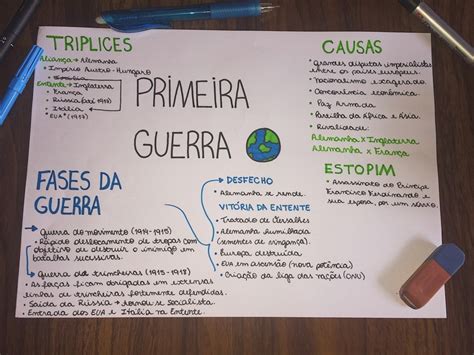 TRIPLICES
Aliança → Alemanha
• Império Austro-Hungaro
• Itália
Entente → Inglaterra
• França
• Rússia (até 1917)
• Itália
• EUA (1917)
PRIMEIRA
GUERRA
CAUSAS
• grandes disputas imperialistas
entre os países europeus.
• Nacionalismo exagerado
• Concorrência econômica
• Paz Armada
• Partilha da África e Ásia
• Rivalidade:
Alemanha X Inglaterra
Alemanha X França
ESTOPIM
• Assassinato do Príncipe
Francisco Ferdinando e
sua esposa, por um sérvio.
FASES DA
GUERRA
→ Guerra do movimento (1914-1915)
• Rápido deslocamento de tropas com
objetivo de destruir o inimigo em
batalhas sucessivas.
→ Guerra de trincheiras (1915-1918)
• As forças ficam obrigadas em extensas
linhas de trincheiras fortemente defendidas.
• Saída da Rússia → tornou-se socialista.
• Entrada dos EUA e Itália na Entente.
→ DESFECHO
• Alemanha se rende.
VITÓRIA DA ENTENTE
• Tratado de Versalhes
• Alemanha humilhada
(sementes de vingança).
• Europa destruída
• EUA em ascensão (nova potência)
• Criação da liga das nações (ONU)